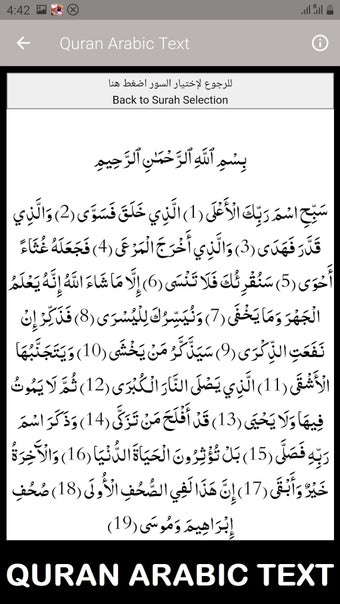 4:42
Quran Arabic Text
للرجوع لإختيار السور اضغط هنا
Back to Surah Selection
بِسْمِ ٱللَّهِ ٱلرَّحْمَـٰنِ ٱلرَّحِيمِ
سَبِّحِ اسْمَ رَبِّكَ الْأَعْلَى (1) الَّذِي خَلَقَ فَسَوَّى (2) وَالَّذِي
قَدَّرَ فَهَدَى (3) وَالَّذِي أَخْرَجَ الْمَرْعَى (4) فَجَعَلَهُ غُثَاءً
أَحْوَى (5) سَنُقْرِئُكَ فَلَا تَنْسَى (6) إِلَّا مَا شَاءَ اللَّهُ إِنَّهُ يَعْلَمُ
الْجَهْرَ وَمَا يَخْفَى (7) وَنُيَسِّرُكَ لِلْيُسْرَى (8) فَذَكِّرْ إِنْ
نَفَعَتِ الذِّكْرَى (9) سَيَذَّكَّرُ مَنْ يَخْشَى (10) وَيَتَجَنَّبُهَا
الْأَشْقَى (11) الَّذِي يَصْلَى النَّارَ الْكُبْرَى (12) ثُمَّ لَا يَمُوتُ
فِيهَا وَلَا يَحْيَى (13) قَدْ أَفْلَحَ مَنْ تَزَكَّى (14) وَذَكَرَ اسْمَ
رَبِّهِ فَصَلَّى (15) بَلْ تُؤْثِرُونَ الْحَيَاةَ الدُّنْيَا (16) وَالْآخِرَةُ
خَيْرٌ وَأَبْقَى (17) إِنَّ هَذَا لَفِي الصُّحُفِ الْأُولَى (18) صُحُفِ
إِبْرَاهِيمَ وَمُوسَى (19)
QURAN ARABIC TEXT